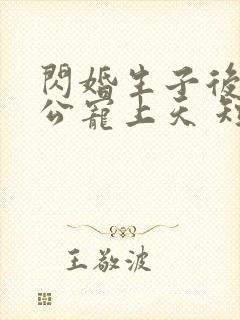 閃婚生子後
公寵上天 短
王敬波